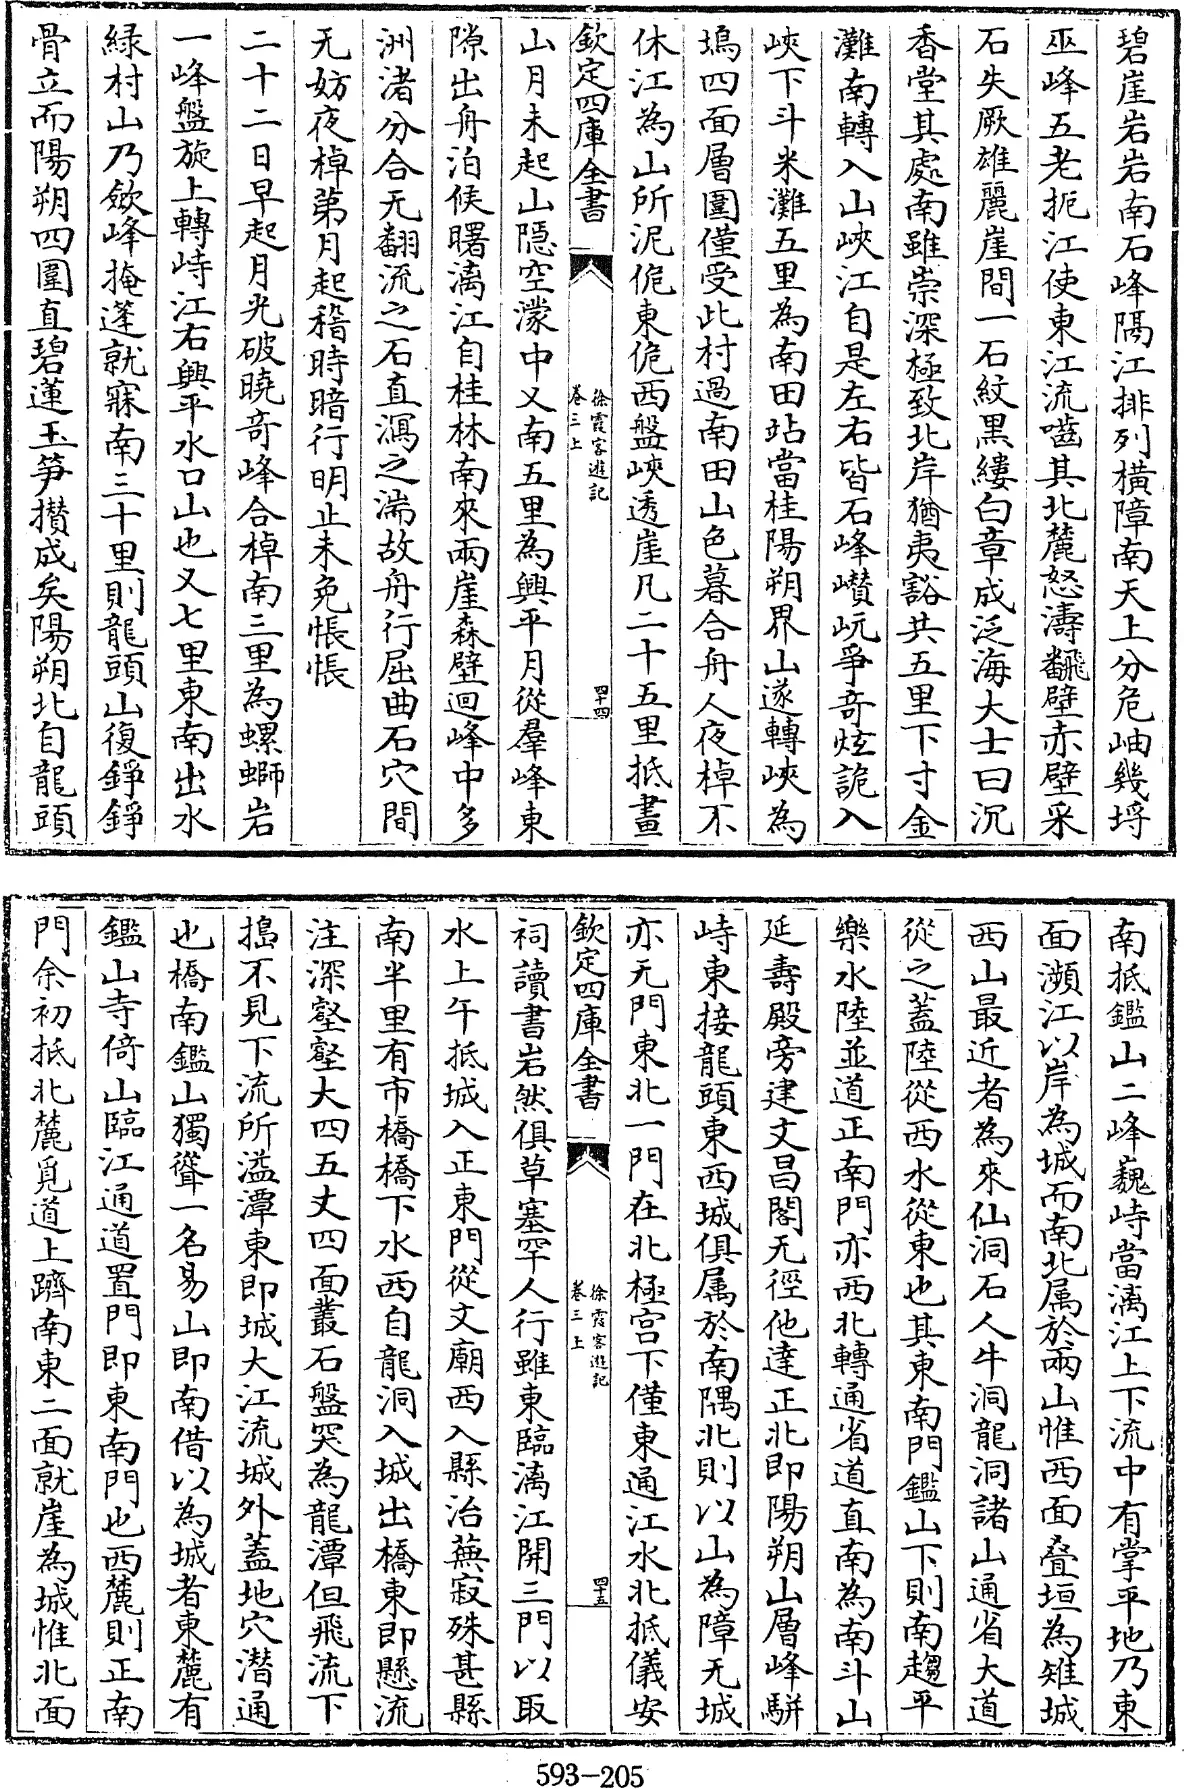 碧崖岩岩南石峰隔江排列横障南天上分危岫幾埒
巫峰五老扼江使東江流嚙其北麓怒濤翻壁赤壁采
石失厥雄麗崖間一石紋黑縷白章成泛海大士曰沉
香堂其處南雖崇深極致北岸猶夷豁共五里下寸金
灘南轉入山峽江自是左右皆石峰巑岏爭奇炫詭入
峽下斗米灘五里為南田站當桂陽朔界山遂轉峽為
塢四面層圍僅受此村過南田山色暮合舟人夜棹不
休江為山所泥佹東佹西盤峽透崖凡二十五里抵畫
欽定四庫全書
徐霞客遊記
卷三上
四十四
山月未起山隱空濛中又南五里為興平月從羣峰東
隙出舟泊候曙漓江自桂林南來兩崖森壁迴峰中多
洲渚分合无翻流之石直瀉之湍故舟行屈曲石穴間
无妨夜棹第月起稽時暗行明止未免悵悵
二十二日早起月光破曉奇峰合棹南三里為螺螄岩
一峰盤旋上轉峙江右興平水口山也又七里東南出水
緑村山乃斂峰掩蓬就寐南三十里則龍頭山復錚錚
骨立而陽朔四圍直碧蓮玉笋攢成矣陽朔北自龍頭
南抵鑑山二峰巍峙當漓江上下流中有掌平地乃東
面瀕江以岸為城而南北属於兩山惟西面叠垣為雉城
西山最近者為來仙洞石人牛洞龍洞諸山通省大道
從之蓋陸從西水從東也其東南門鑑山下則南趨平
樂水陸並道正南門亦西北轉通省道直南為南斗山
延壽殿旁建文昌閣无徑他達正北即陽朔山層峰駢
峙東接龍頭東西城俱属於南隅北則以山為障无城
亦无門東北一門在北極宫下僅東通江水北抵儀安
欽定四庫全書
徐霞客遊記
卷三上
四十五
祠讀書岩然俱草塞罕人行雖東臨漓江開三門以取
水上午抵城入正東門從文廟西入縣治蕪寂殊甚縣
南半里有市橋橋下水西自龍洞入城出橋東即懸流
注深壑壑大四五丈四面叢石盤突為龍潭但飛流下
搗不見下流所溢潭東即城大江流城外蓋地穴潛通
也橋南鑑山獨聳一名易山即南借以為城者東麓有
鑑山寺倚山臨江通道置門即東南門也西麓則正南
門余初抵北麓覓道上躋南東二面就崖為城惟北面
593-205